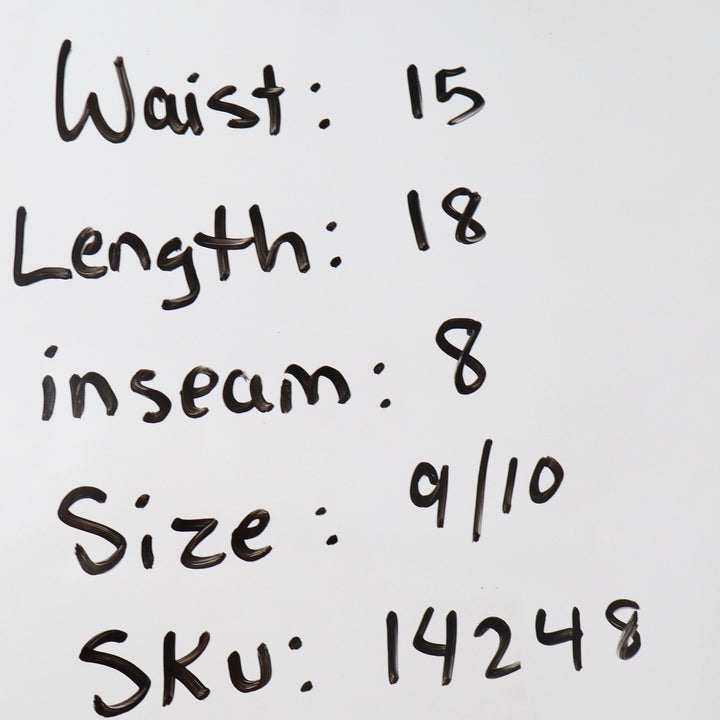 Waist: 15
Length: 18
inseam: 8
Size: 9/10
SKU: 14248